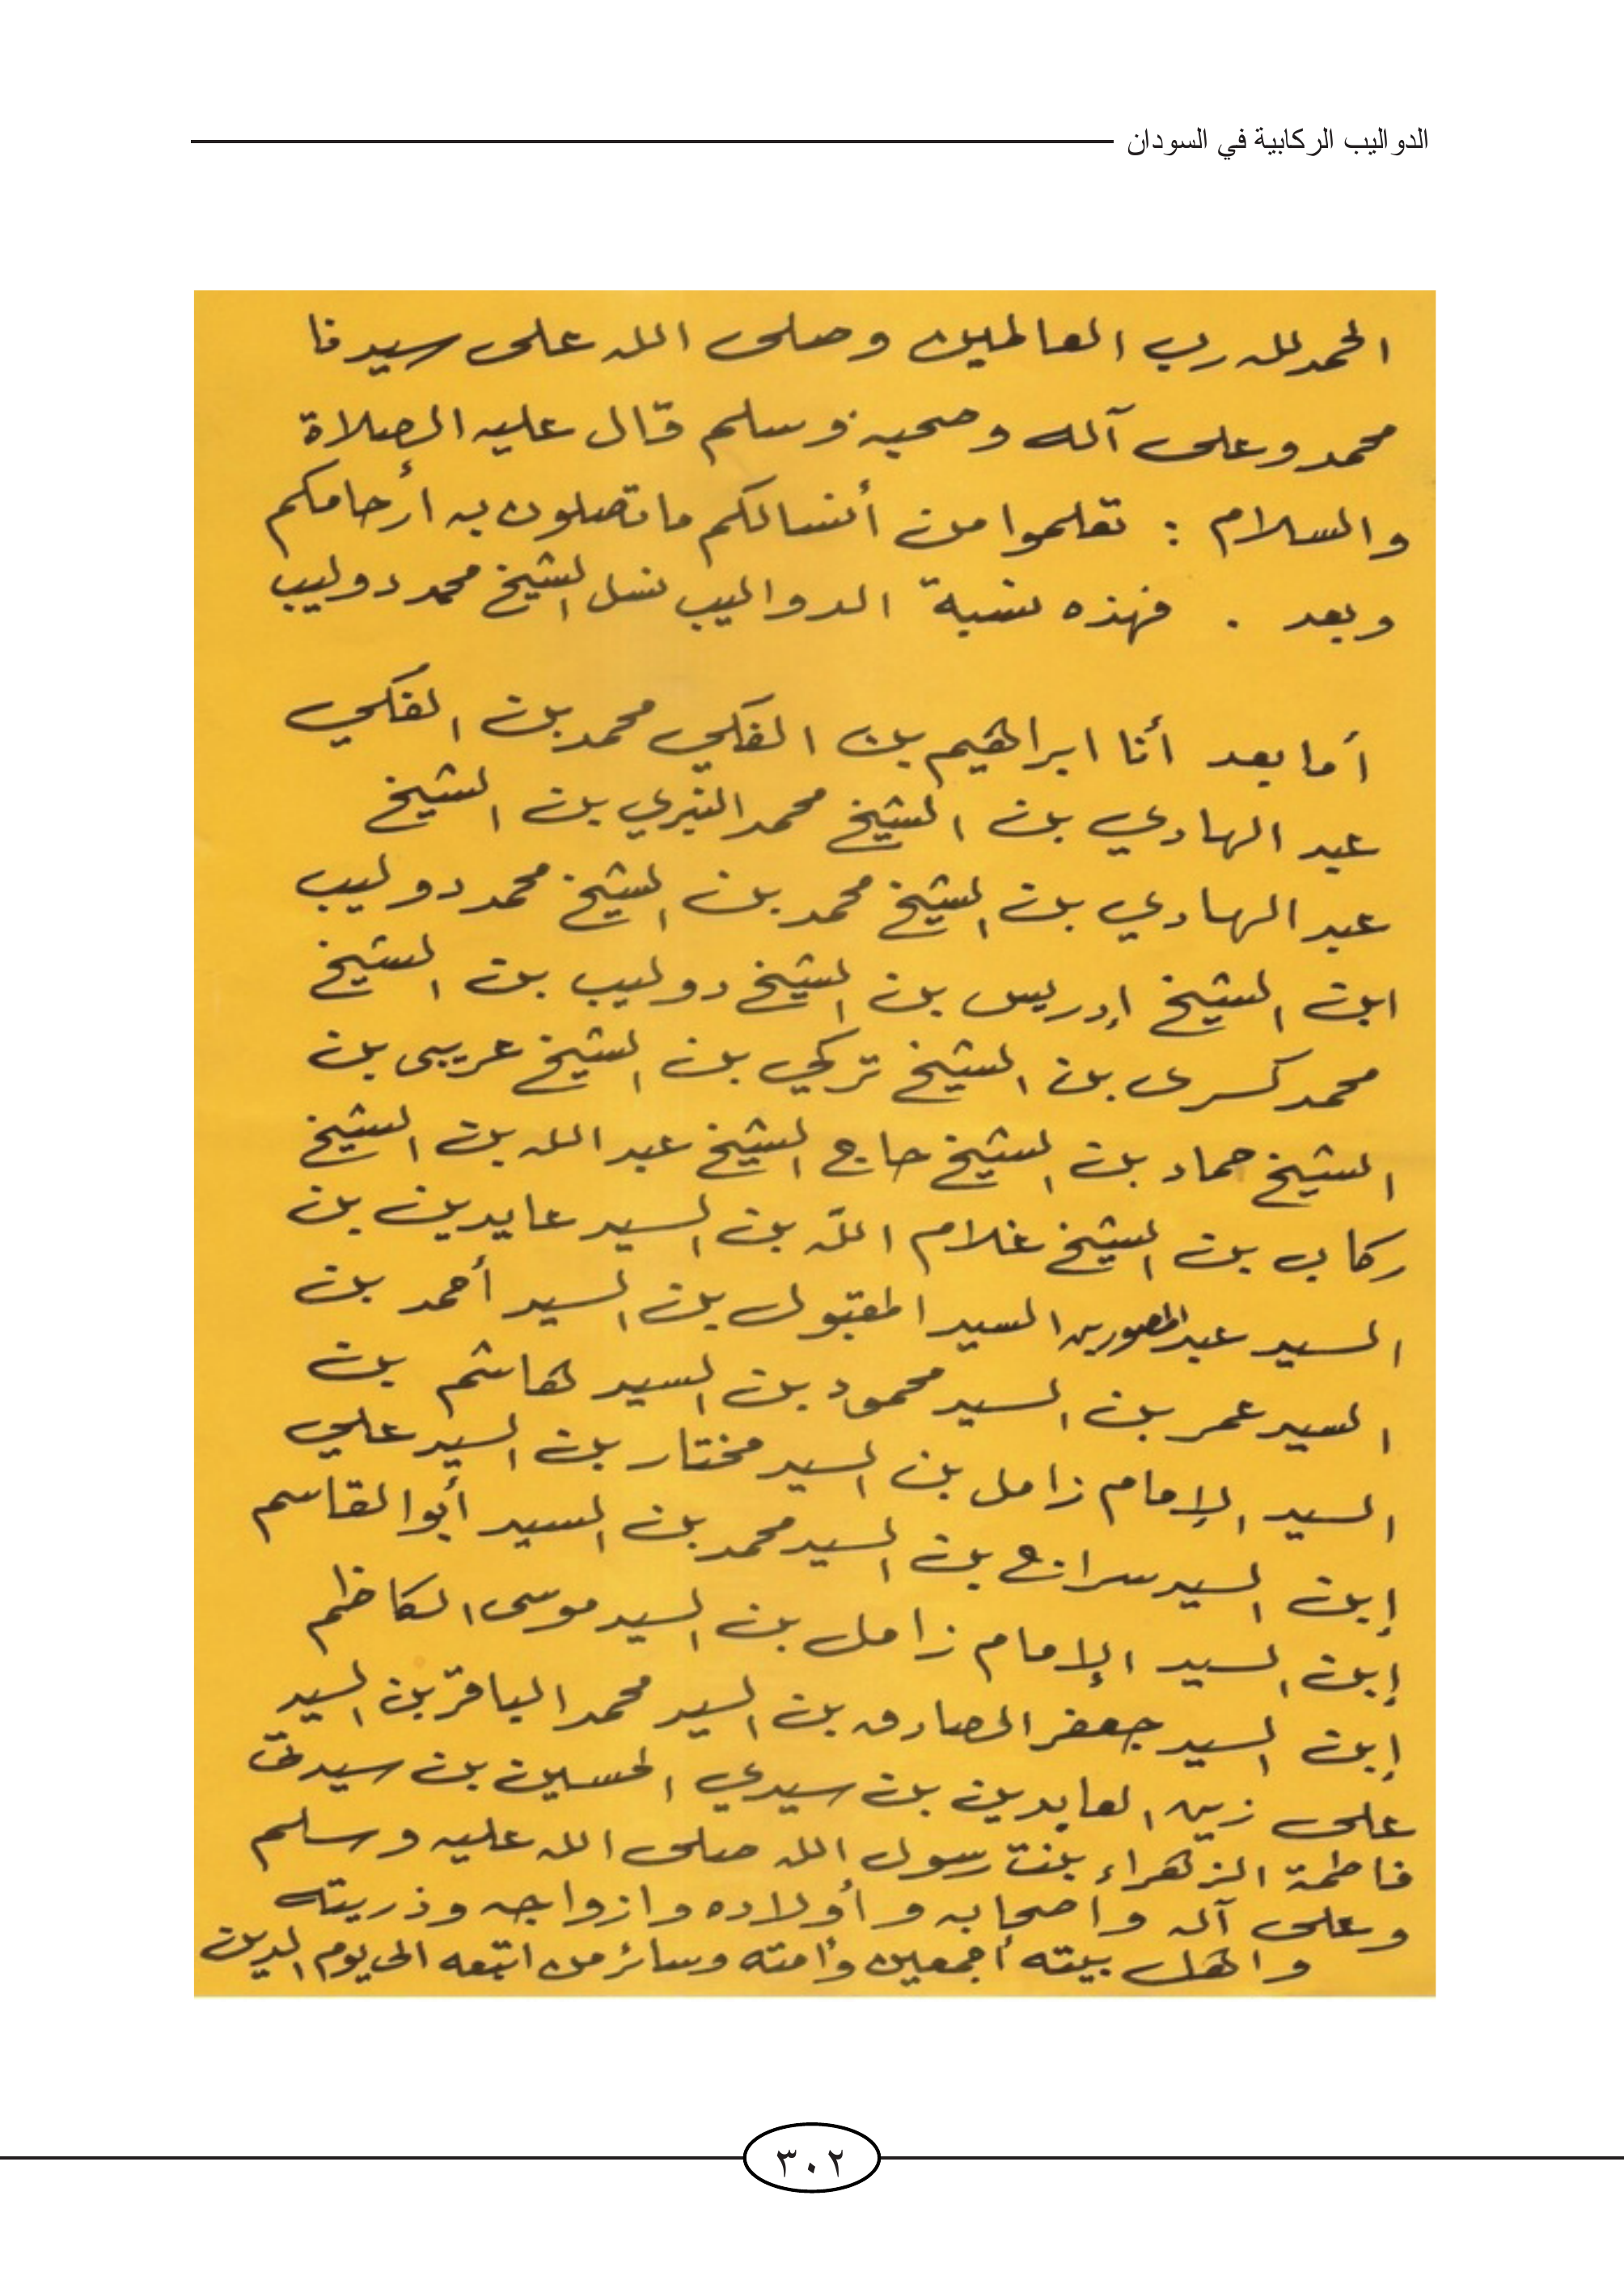 الدواليب الركابية في السودان
الحمد لله رب العالمين وصلى الله على سيدنا
محمد وعلى آله وصحبه وسلم قال عليه الصلاة
والسلام : تعلموا من أنسالكم ما تصلون به أرحامكم
وبعد . فهذه نسبة الدواليب نسل الشيخ محمد دوليب
أما بعد أنا ابراهيم بن الفكي محمد بن الفكي
عبد الهادي بن الشيخ محمد النيري بن الشيخ
عبد الهادي بن الشيخ محمد بن الشيخ محمد دوليب
ابن الشيخ إدريس بن الشيخ دوليب بن الشيخ
محمد كسرى بن الشيخ تركي بن الشيخ عريبى بن
الشيخ حماد بن الشيخ حاج الشيخ عبد الله بن الشيخ
ركاب بن الشيخ غلام الله بن السيد عايدين بن
السيد عبد السيد المقبول بن السيد أحمد بن
السيد عمر بن السيد محمود بن السيد هاشم بن
السيد الإمام زامل بن السيد مختار بن السيد علي
إبن السيد سراج بن السيد محمد بن السيد أبو القاسم
إبن السيد الإمام زامل بن السيد موسى الكاظم
إبن السيد جعفر الصادق بن السيد محمد الباقر بن السيد
على زين العابدين بن سيدي الحسين بن سيدتي
فاطمة الزهراء بنت رسول الله صلى الله عليه وسلم
وعلى آله واصحابه وأولاده وازواجه وذريته
واهل بيته أجمعين وأمته وسائر من اتبعه الى يوم الدين
٣٠٢